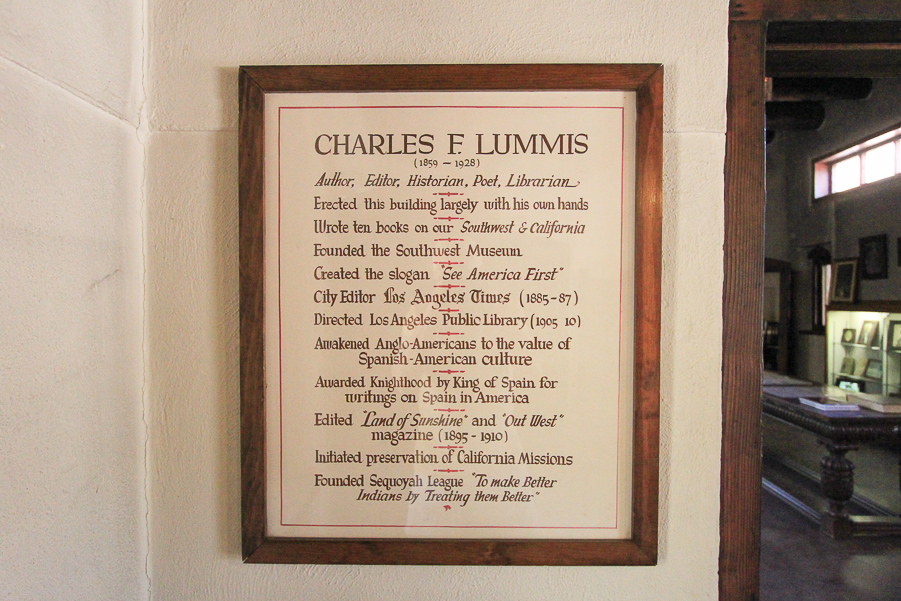 CHARLES F. LUMMIS
(1859 - 1928)
Author, Editor, Historian, Poet, Librarian
Erected this building largely with his own hands
Wrote ten books on our Southwest & California
Founded the Southwest Museum
Created the slogan "See America First"
City Editor Los Angeles Times (1885-87)
Directed Los Angeles Public Library (1905 10)
Awakened Anglo-Americans to the value of
Spanish-American culture
Awarded Knighthood by King of Spain for
writings on Spain in America
Edited "Land of Sunshine" and "Out West"
magazine (1895 - 1910)
Initiated preservation of California Missions
Founded Sequoyah League "To make Better
Indians by Treating them Better"